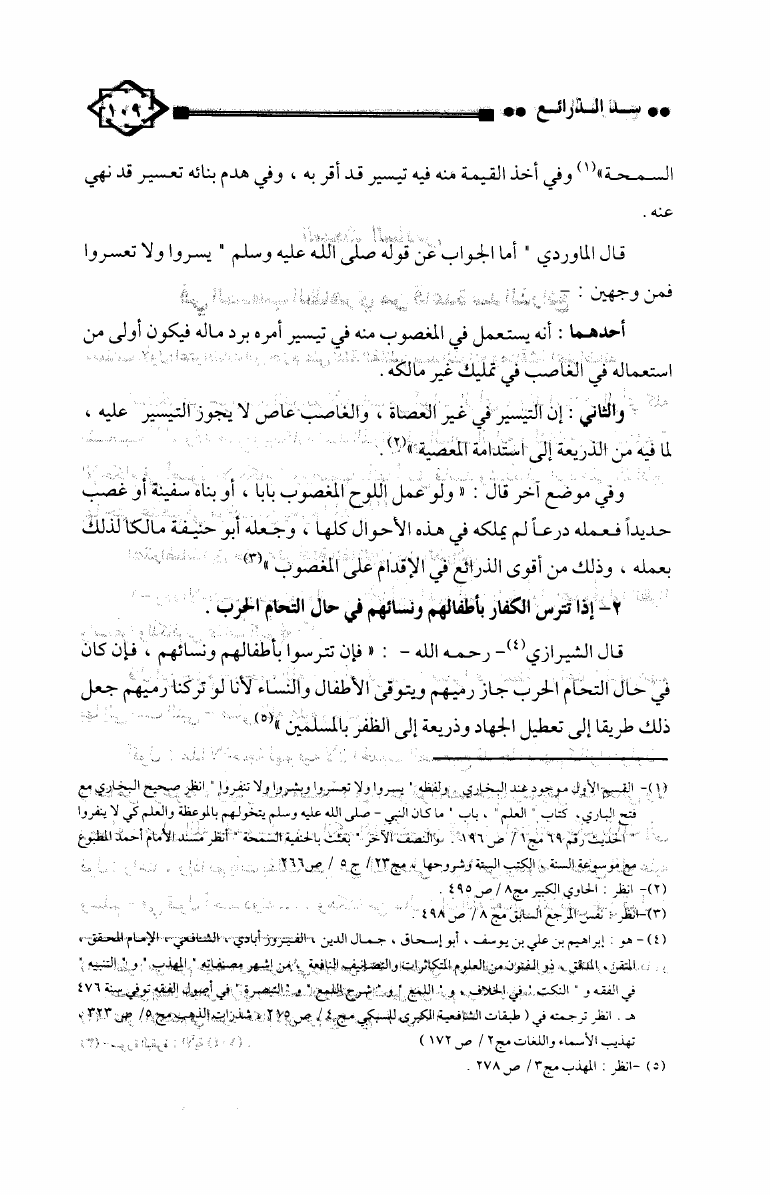 •• سد الذرائع ••
١٠٩
السمحة»(١) وفي أخذ القيمة منه فيه تيسير قد أقر به ، وفي هدم بنائه تعسير قد نهي
عنه .
قال الماوردي " أما الجواب عن قوله صلى الله عليه وسلم " يسروا ولا تعسروا
فمن وجهين : -
أحدهما : أنه يستعمل في المغصوب منه في تيسير أمره برد ماله فيكون أولى من
استعماله في الغاصب في تمليك غير مالكه .
والثاني : إن التيسير في غير العصاة ، والغاصب عاص لا يجوز التيسير عليه ،
لما فيه من الذريعة إلى استدامة المعصية »(٢) .
وفي موضع آخر قال : « ولو عمل اللوح المغصوب بابا ، أو بناه سفينة أو غصب
حديداً فعمله درعاً لم يملكه في هذه الأحوال كلها ، وجعله أبو حنيفة مالكا لذلك
بعمله ، وذلك من أقوى الذرائع في الإقدام على المغصوب »(٣)
٢- إذا تترس الكفار بأطفالهم ونسائهم في حال التحام الحرب .
قال الشيرازي(٤)- رحمه الله - : « فإن تترسوا بأطفالهم ونسائهم ، فإن كان
في حال التحام الحرب جاز رميهم ويتوقى الأطفال والنساء لأنا لو تركنا رميهم جعل
ذلك طريقا إلى تعطيل الجهاد وذريعة إلى الظفر بالمسلمين »(٥)
(١)- القسم الأول موجود عند البخاري . ولفظه " يسروا ولا تعسروا وبشروا ولا تنفروا " انظر صحيح البخاري مع
فتح الباري، كتاب " العلم " ، باب " ما كان النبي - صلى الله عليه وسلم يتخولهم بالموعظة والعلم كي لا ينفروا
" الحديث رقم ٦٩ مج١ / ص ١٩٦ . والنصف الآخر " بعثت بالحنفية السمحة " أنظر مسند الأمام أحمد المطبوع
مع موسوعة السنة ، الكتب الستة وشروحها ، مج٢٣ / ج ٥ / ص٢٦٦
(٢)- انظر : الحاوي الكبير مج٨ / ص ٤٩٥ .
(٣)-انظر : نفس المرجع السابق مج ٨ / ص ٤٩٨
(٤)- هو : إبراهيم بن علي بن يوسف ، أبو إسحاق ، جمال الدين ، الفيروز أبادي ، الشافعي ، الإمام المحقق ،
المتقن، المدقق ، ذو الفنون من العلوم المتكاثرات والتصانيف النافعة ، من إشهر مصنفاته " المهذب " و " التنبيه "
في الفقه و " النكت " في الخلاف ، و " اللمع " و " شرح اللمع " و " التبصرة " في أصول الفقه توفي سنة ٤٧٦
هـ . انظر ترجمته في ( طبقات الشافعية الكبرى للسبكي مج ٤ / ص ٢٧٥ ، شذرات الذهب مج ٥ / ص ٣٢٣ ،
تهذيب الأسماء واللغات مج٢ / ص ١٧٢ )
(٥) -انظر : المهذب مج٣ / ص ٢٧٨ .